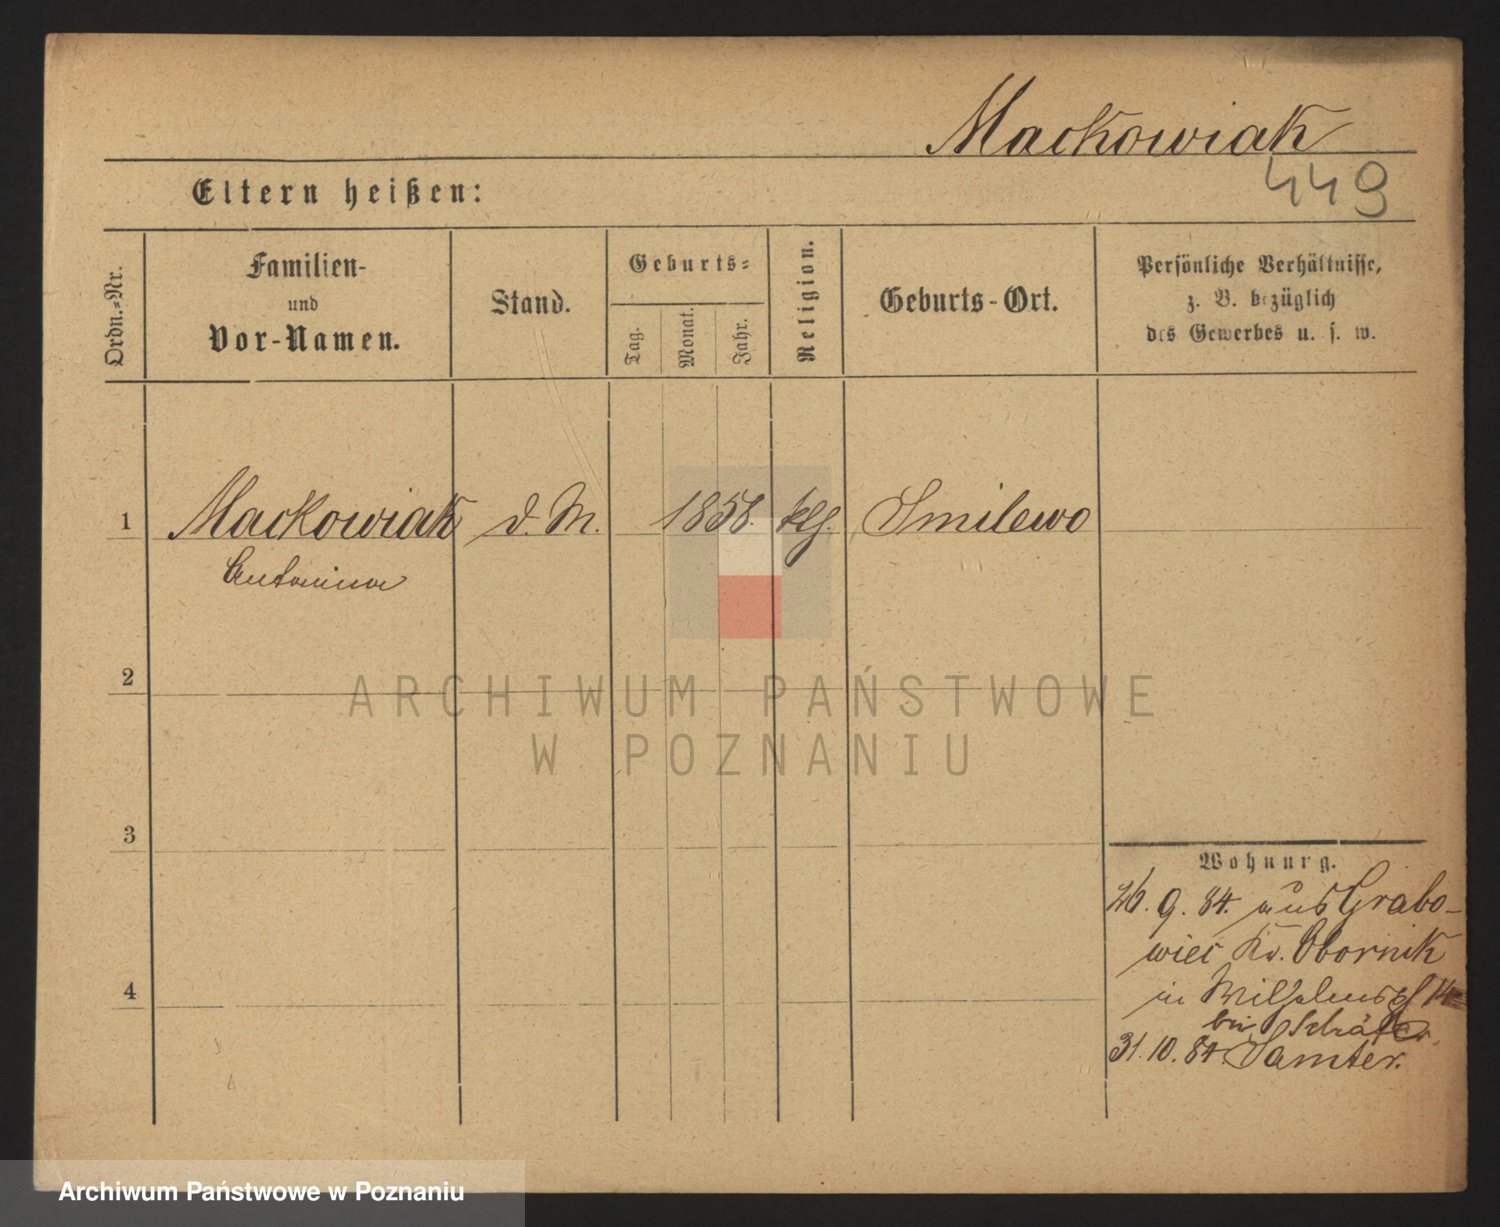 Mackowiak
449
Eltern heißen:
Ordn.-Nr.
Familien-
und
Vor-Namen.
Stand.
Geburts-
Tag.
Monat.
Jahr.
Religion.
Geburts-Ort.
Persönliche Verhältnisse,
z. B. bezüglich
des Gewerbes u. s. w.
1 Mackowiak d. M. 1858. klg. Smilewo
Antonina
2
ARCHIWUM PAŃSTWOWE
W POZNANIU
3
4
Wohnung.
26. 9. 84. aus Grabo-
wiec Kr. Obornik
in Wilhelmspl 14
bei Schäfer.
31. 10. 84. Samter.
Archiwum Państwowe w Poznaniu